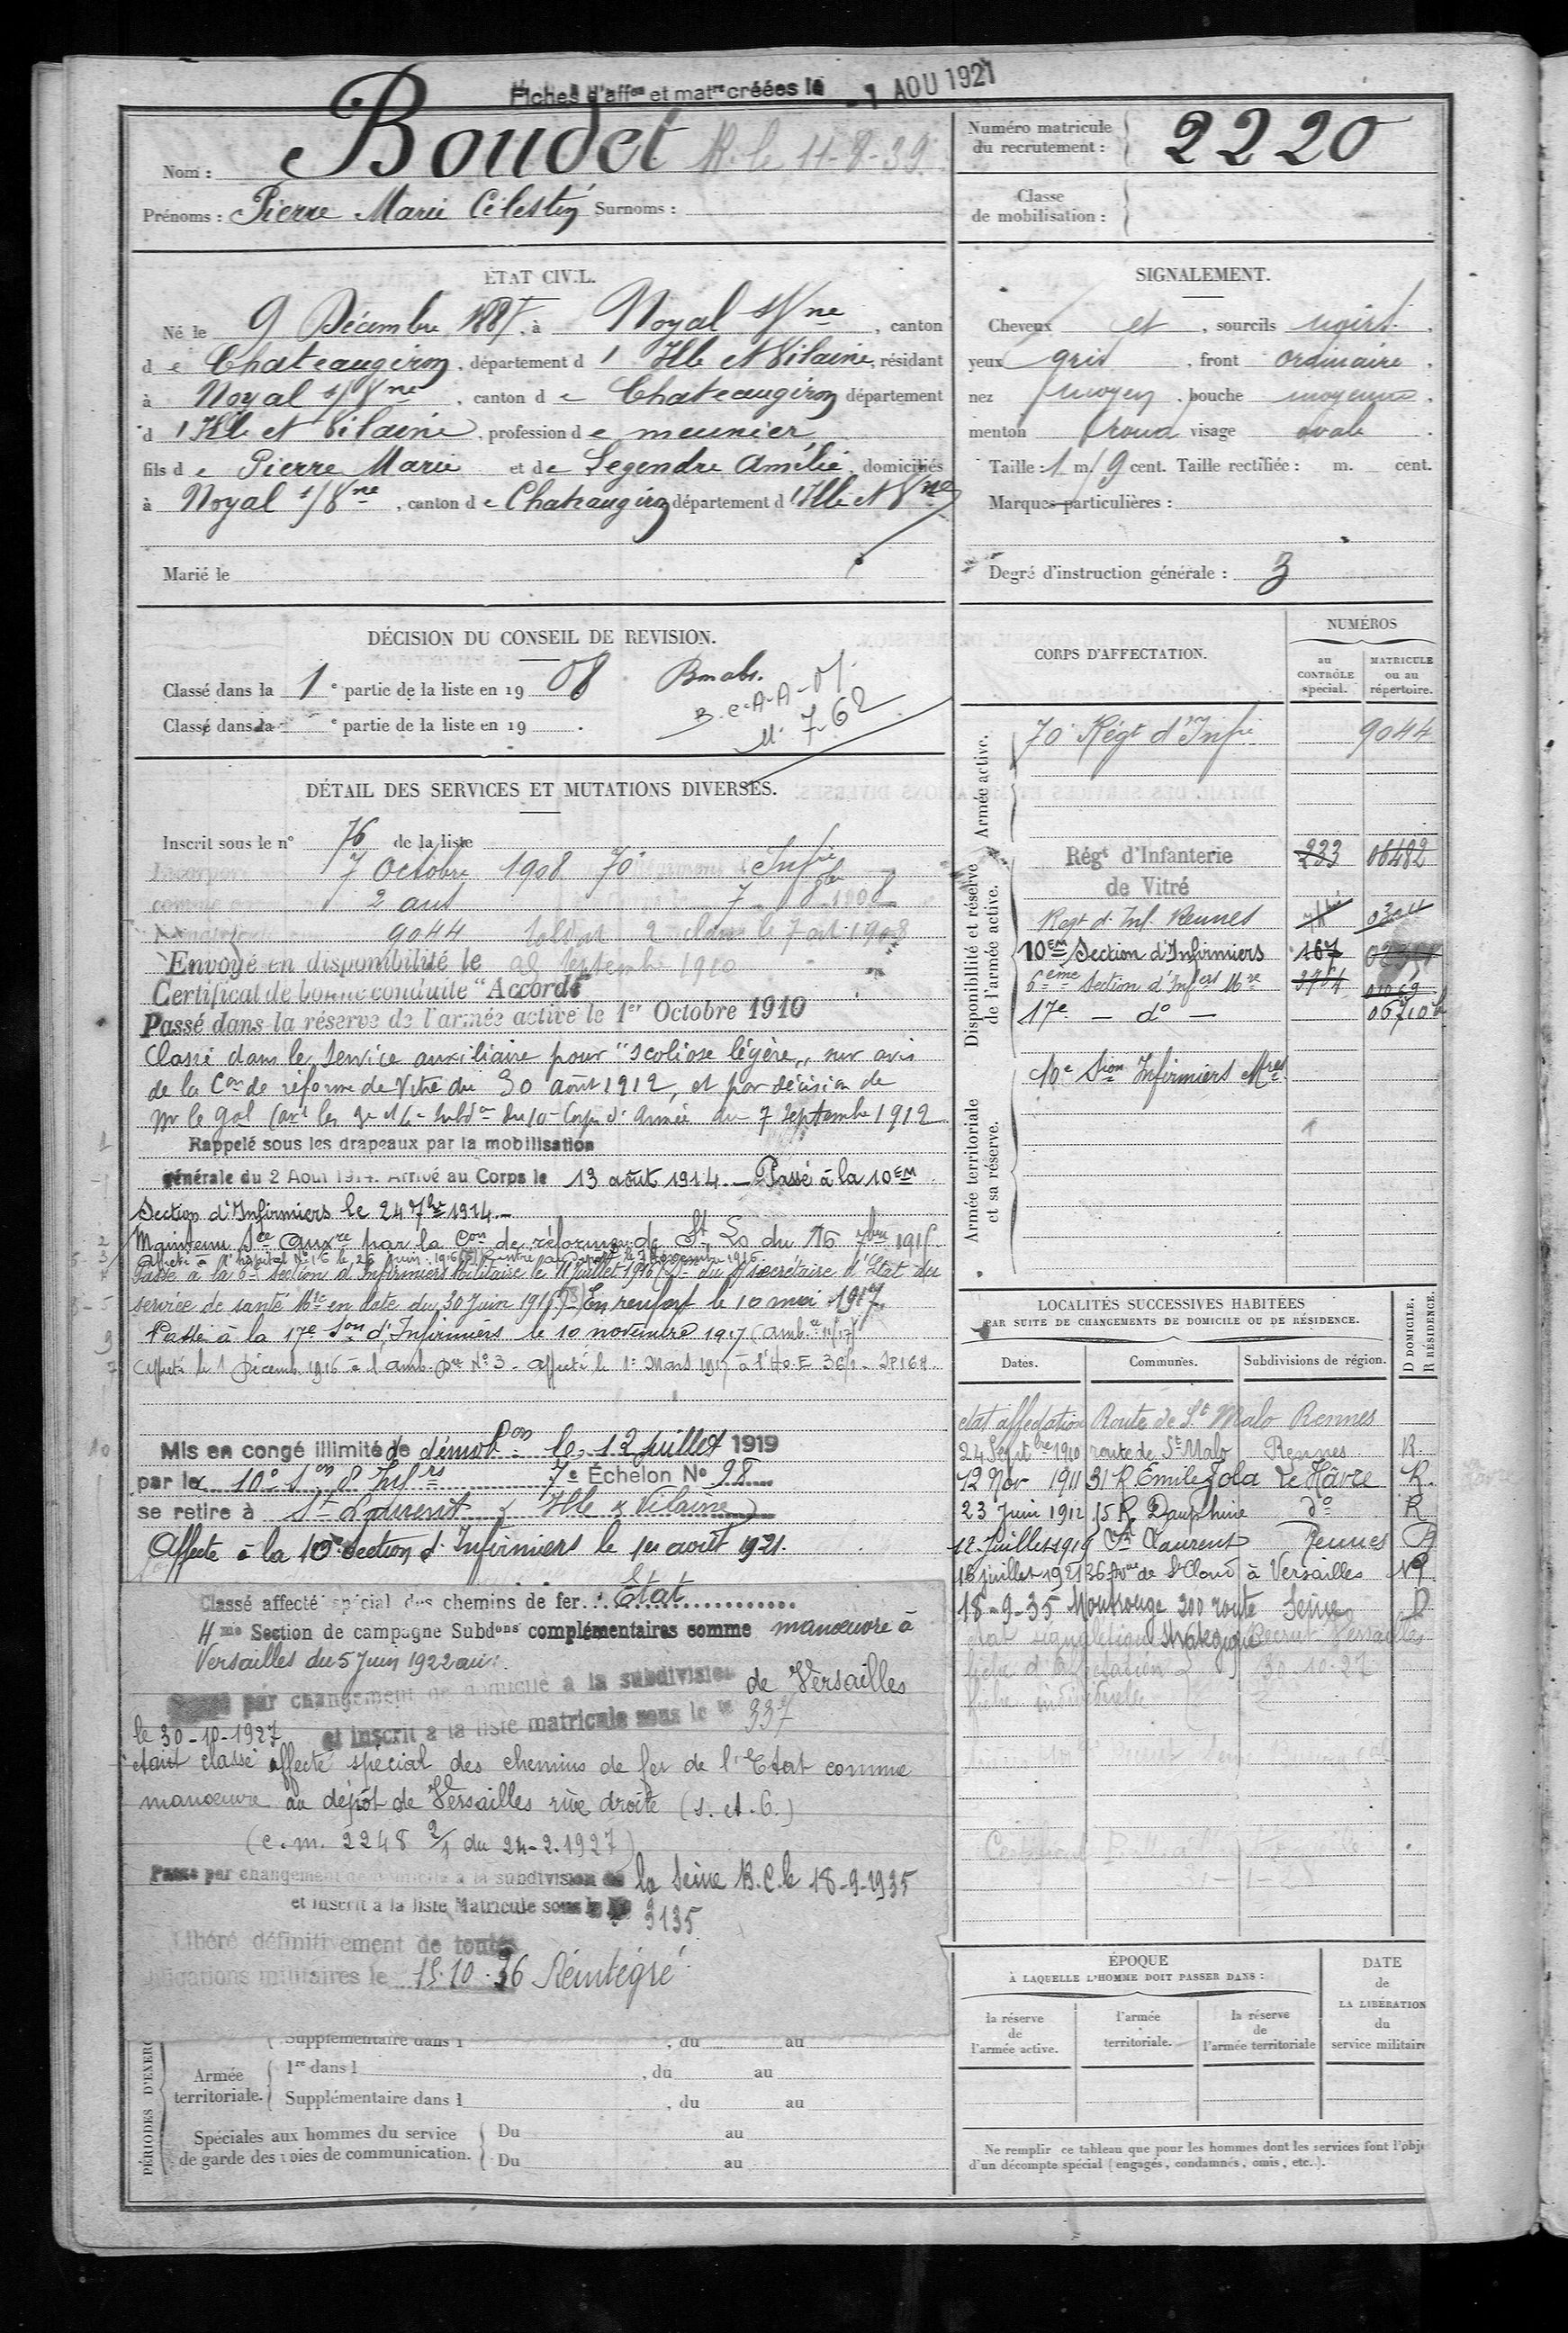 Fiches d'affon et matre créées le -1 AOU 1921
Nom : Boudet R. le 11-8-39
Prénoms : Pierre Marie Célestin Surnoms :
Numéro matricule du recrutement : 2220
Classe de mobilisation :
ÉTAT CIVIL.
Né le 9 Décembre 1887, à Noyal s/Vne, canton
de Chateaugiron, département d'Ille et Vilaine, résidant
à Noyal s/Vne, canton de Chateaugiron département
d'Ille et Vilaine, profession de meunier
fils de Pierre Marie et de Legendre Amélie, domiciliés
à Noyal s/Vne, canton de Chateaugiron département d'Ille et Vne
Marié le
SIGNALEMENT.
Cheveux et, sourcils noirs.
yeux gris, front ordinaire,
nez moyen, bouche moyenne,
menton rond visage ovale.
Taille : 1 m. cent. Taille rectifiée : m. cent.
Marques particulières :
Degré d'instruction générale : 3
DÉCISION DU CONSEIL DE REVISION.
Classé dans la 1e partie de la liste en 1908 Bon abs.
Classé dans la e partie de la liste en 19 .
B.C.A.A-
7-62
DÉTAIL DES SERVICES ET MUTATIONS DIVERSES.
Inscrit sous le n° 76 de la liste
7 Octobre 1908 70e Infrie
2 ans 7 8bre 1908
9044 Soldat 2 classe le 7 oct 1908
Envoyé en disponibilité le 25 Septembre 1910
Certificat de bonne conduite "Accordé"
Passé dans la réserve de l'armée active le 1er Octobre 1910
Classé dans le service auxiliaire pour "scoliose légère" sur avis
de la Con de réforme de Vitré du 30 août 1912, et par décision de
Mr le Gal Cart les Subdon du 10e Corps d'Armée du 7 Septembre 1912
Rappelé sous les drapeaux par la mobilisation
générale du 2 Août 1914. Arrivé au Corps le 13 août 1914. — Passé à la 10EM
Section d'Infirmiers le 24 7bre 1914.—
Maintenu Sce Auxre par la Con de réforme de St Lo du 16 7bre 1915
Affecté à l'hôpital
Passé à la 6e Section d'Infirmiers Militaire le 11 juillet 1916 du s/secrétaire d'Etat du
service de santé Mre en date du 30 Juin 1916 En renfort le 10 mai 1917
Passé à la 17e Son d'Infirmiers le 10 novembre 1917
Affecté le 1 Décemb. 1916 à l'amb. N° 3 - affecté le 1er Mars 1917 à l'Ho.E 36/1 - SP 164.
Mis en congé illimité de démobon le 12 juillet 1919
par la 10e Son d'Infrs 7e Échelon N° 98
se retire à St Laurent (Ille & Vilaine)
Affecté à la 10e section d'Infirmiers le 1er août 1921.
Classé affecté spécial des chemins de fer... Etat
4me Section de campagne Subdons complémentaires comme manœuvre à
Versailles du 5 Juin 1922 au
Passé par changement de domicile à la subdivision de Versailles
le 30-10-1927 et inscrit à la liste matricule sous le n° 337
etait classé affecté spécial des chemins de fer de l'Etat comme
manœuvre au dépôt de Versailles rive droite (s. et. O.)
(c. m. 2248 2/1 du 24-2-1927)
Passé par changement de domicile à la subdivision de la Seine B.C. le 18-9-1935
et inscrit à la liste Matricule sous le N° 3135
Libéré définitivement de toutes
obligations militaires le 15.10.36 Réintégré
PÉRIODES D'EXERC
Supplémentaire dans l , du au
Armée territoriale. 1re dans l , du au
Supplémentaire dans l , du au
Spéciales aux hommes du service de garde des voies de communication. Du au
Du au
CORPS D'AFFECTATION.
NUMÉROS
au CONTRÔLE spécial.
MATRICULE ou au répertoire.
Armée active.
70e Régt d'Infrie 9044
Disponibilité et réserve de l'armée active.
Régt d'Infanterie de Vitré 233 06482
Régt d'Inf. Rennes
10EM Section d'Infirmiers 167
6ème Section d'Infers Mre 3764
17e — do — 06710
Armée territoriale et sa réserve.
10e Sion Infirmiers Mres
LOCALITÉS SUCCESSIVES HABITÉES
PAR SUITE DE CHANGEMENTS DE DOMICILE OU DE RÉSIDENCE.
Dates. Communes. Subdivisions de région. D DOMICILE. R RÉSIDENCE.
état affectation Route de St Malo Rennes
24 Septbre 1910 route de St Malo Rennes R.
12 Nov 1911 31 R. Emile Zola Le Hâvre R.
23 Juin 1912 15 R. Dauphine do R
12 Juillet 1919 St Laurent Rennes D
16 juillet 1921 36 Avue de St Cloud à Versailles
18-9-35 Montrouge 200 route Seine D
stratégique
30-10-27
ÉPOQUE
À LAQUELLE L'HOMME DOIT PASSER DANS :
la réserve de l'armée active.
l'armée territoriale.
la réserve de l'armée territoriale
DATE de LA LIBÉRATION du service militaire
Ne remplir ce tableau que pour les hommes dont les services font l'obj
d'un décompte spécial (engagés, condamnés, omis, etc.).